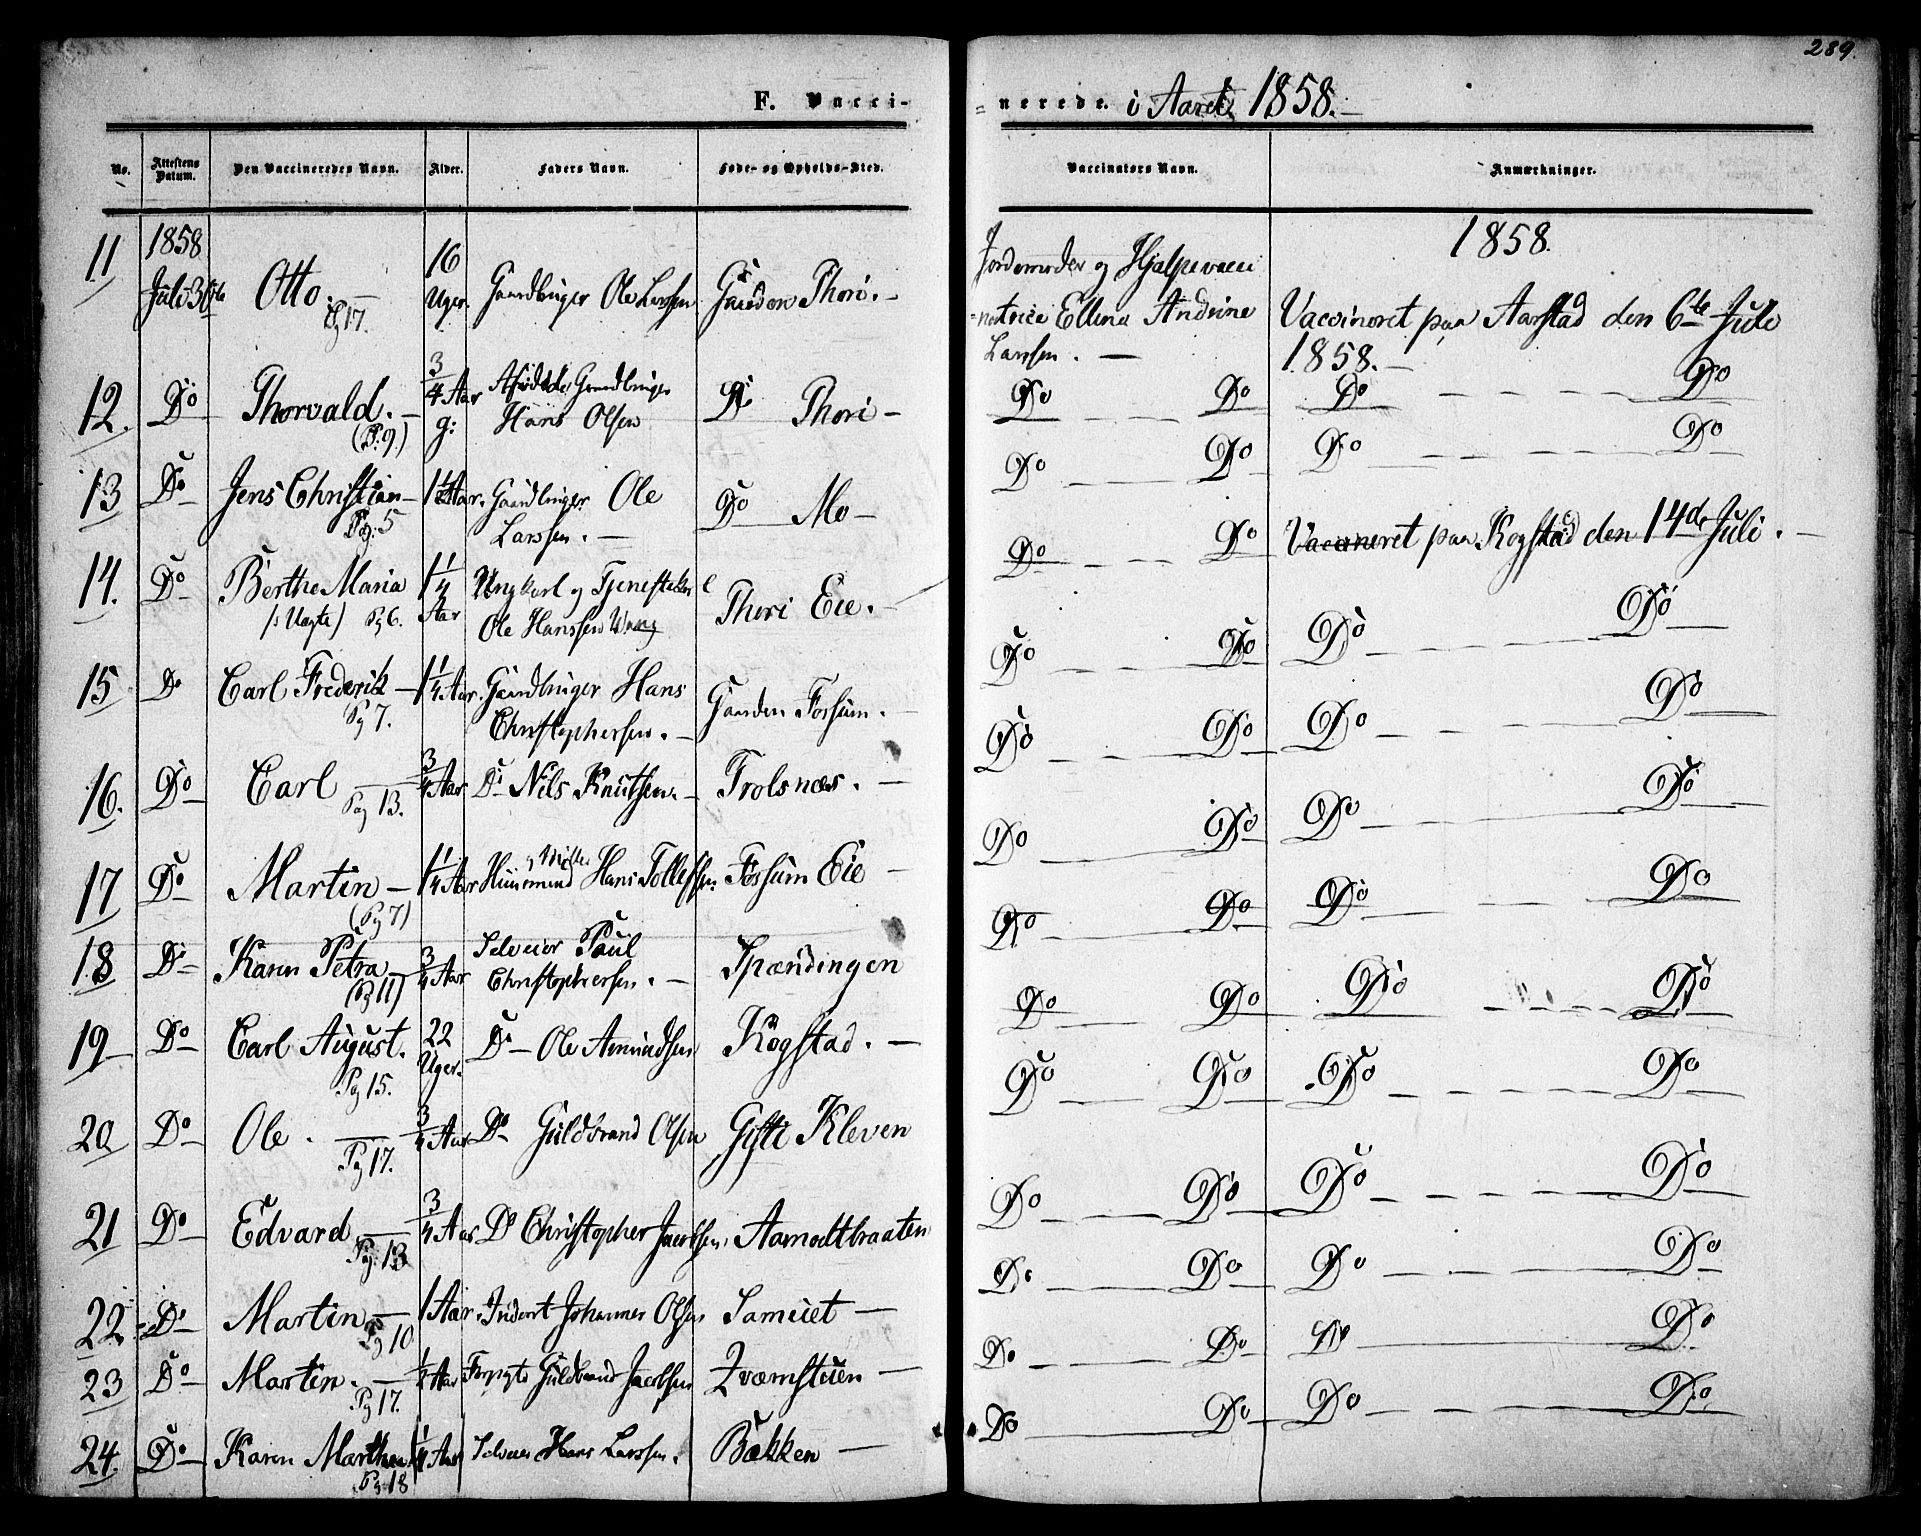 289.
F. Vacci-
-nerede. i Aaret 1858.-
No. Attestens Datum. Den Vaccineredes Navn. Alder. Faders Navn. Føde- og Opholds-Sted. Vaccinators Navn. Anmærkninger.
1858
11 Juli 30te Otto. Pg 17. 16 Uger. Gaardbruger Ole Larssen Gaarden Thori.-
Jordemoder og Hjælpevacci
-natrice Ellena Andrine
Larssen. -
1858.
Vaccineret paa Aarstad den 6te Juli
1858.-
12. Do Thorvald.- (P: 9.) 3/4 Aar g: Gaardbruger Hans Olsen Do Thori -
Do Do Do Do
13 Do Jens Christian- Pg: 5 1 1/4 Aar. Gaardbruger Ole Larssen.- Do Mo-
Do Do Do Do
14. Do Berthe Maria (: Uægte) Pg 6. 1 1/4 Aar Ungkarl og Tjeneste Ole Hanssen Wang Thori Eie.-
Do Do Vaccineret paa Kogstad den 14de Juli.-
15 Do Carl Frederik- Pg 7. 1 1/4 Aar. Gaardbruger Hans Christophersen.- Gaarden Fossum.-
Do Do Do Do
16. Do Carl Pag 13. 3/4 Aar Do Nils Knutsen.- Trolsnæs.-
Do Do Do Do
17 Do Martin- (Pg 7) 1 1/4 Aar Huusmand Hans Tollefsen. Fossum Eie -
Do Do Do Do
18 Do Karen Petra- (Pg 11) 3/4 Aar Selveier Paul Christophersen.- Spændingen
Do Do Do Do
19- Do Carl August. Pg 15. 22 Uger. Do - Ole Amundsen Kogstad.-
Do Do Do Do
20 Do Ole. Pg 17. 3/4 Aar Do Guldbrand Olsen Gifti Kleven
Do Do Do Do
21 Do Edvard Pag: 13 3/4 Aar Do Christopher Jacobsen. Aamodtbraaten
Do Do Do Do
22 Do Martin- Pg 10 1 Aar. Inderst Johannes Olsen -
Do Do Do Do
23 Do Martin.- Pg 17. 1/2 Aar Guldbrand Jacobsen Qværnstuen -
Do Do Do Do
24 Do Karen Marthea Pg 18 1/4 Aar Selveier Hans Larssen. Bakken -
Do Do Do Do